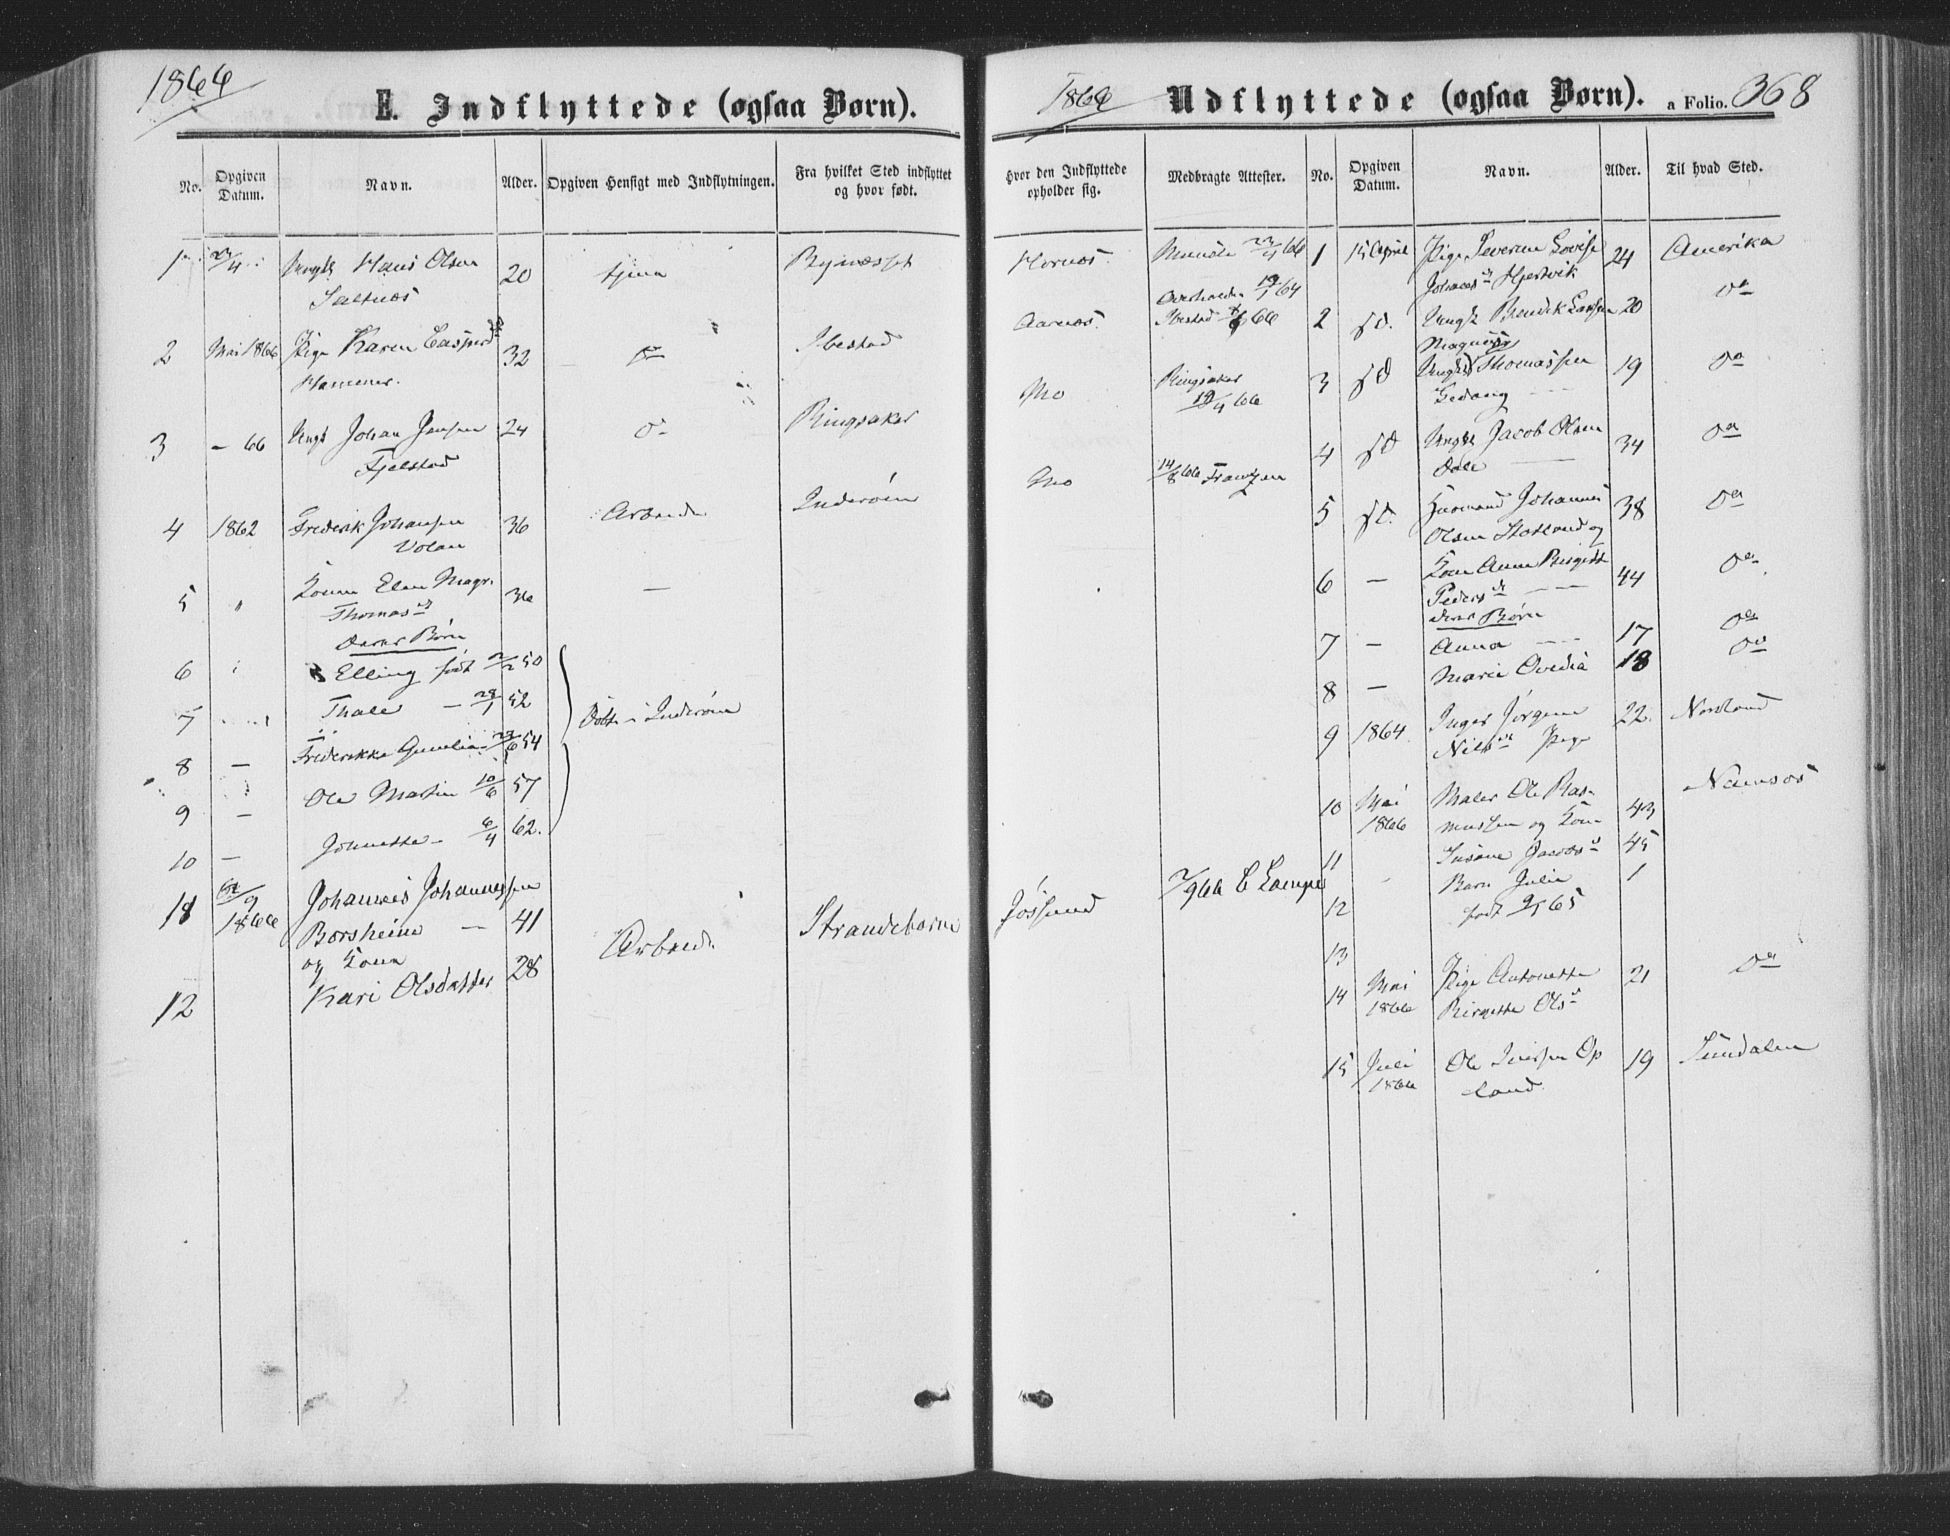 1866
E. Indflyttede (ogsaa Børn).
No. Opgiven Datum. Navn. Alder. Opgiven Hensigt med Indflytningen. Fra hvilket Sted indflyttet og hvor født.
1 23/4 Ungk Hans Olsen 20 tjene Bynæsset
Saltnæs
2 Mai 1866 Pige Karen Caspersd 32 do Ibestad
Hammer.
3 – 66 Ungk Johan Jensen 24 do Ringsaker
Fjelstad
4 1862 Frederik Johansen 36 Arbeide Inderøen
Volan
5 " Konen Elen Magr. 36 —
Thomasd
deres Børn
6 " Elling født 2/2 50
7 " Thale – 28/1 52 Døbte i Inderøen
8 — Frederikke Gunelia 23/6 54
9 — Ole Martin 10/6 57
10 — Johnette – 6/4 62.
11 /9 1866 Johannes Johannessen
Borsheim — 41 Arbeide Strandebarm
og Kone
12 Kari Olsdatter 28
1866
Udflyttede (ogsaa Børn). a Folio. 368
Hvor den Indflyttede opholder sig. Medbragte Attester. No. Opgiven Datum. Navn. Alder. Til hvad Sted.
Hornæs 23/4 66 1 15 April Pige Severine Lovise 24 Amerika
19/1 64 Johannesd Hjertvik
Aarnæs Ibestad 66 2 sd. Ungk Bendik Larsen 20 do
Magnus
Mo Ringsaker 3 sd Ungk Thomassen 19 do
19/4 66
4 sd Ungk Jacob Olsen 34 do
Mo 14/8 66 Frantzen Dale —
5 sd. Huusmand Johannes 38 do
Olsen og
6 — Kone Anne Bergitte 44 do
Pedersd —
deres Børn
7 — Anna — 17 do
8 — Marie Ovedia 18 do
9 1864 Inger Jørgine 22. Nordland
Nilsd Pige
10 Mai 1866 Maler Ole Ras- 43 Namsos
mussen og Kone
11 Susane Jacobsd 45
Jøssund 2/9 66 C Lampe Barn Julie 1
12 født 2/5 65
13
14 Mai 1866 Pige Antonette 21 do
Birgitte Olsd
15 Juli 1866 Ole Iversen Op 19 Sundalen
land.